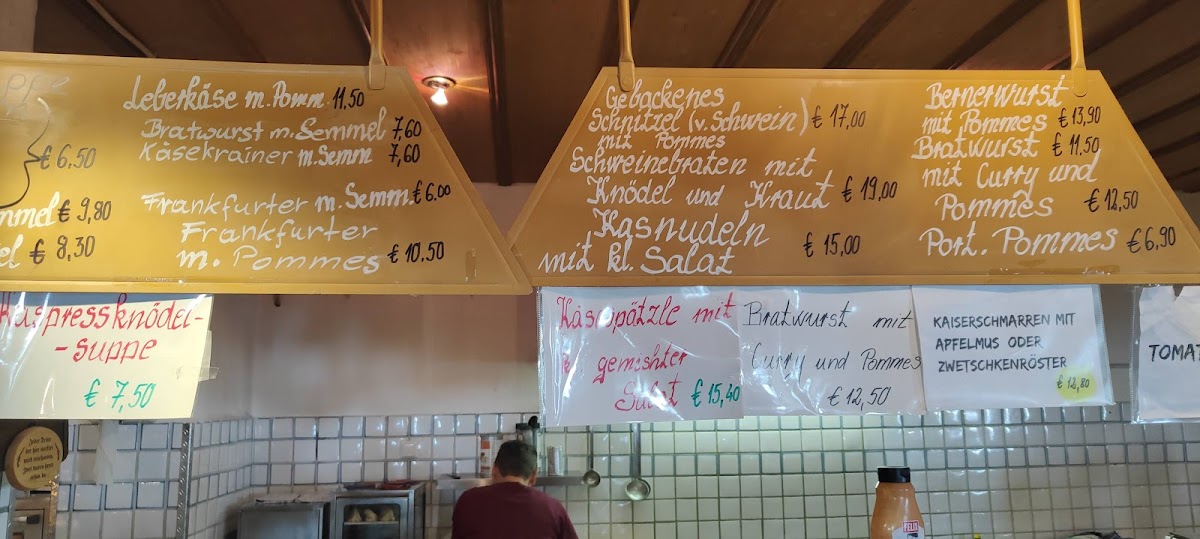 € 6,50
€ 9,80
€ 8,30
Leberkäse m. Pomm. 11,50
Bratwurst m. Semmel 7,60
Käsekrainer m. Semm 7,60
Frankfurter m. Semm. € 6,00
Frankfurter
m. Pommes € 10,50
Gebackenes
Schnitzel (v. Schwein) € 17,00
mit Pommes
Schweinebraten mit
Knödel und Kraut € 19,00
Kasnudeln
mit kl. Salat € 15,00
Bernerwurst
mit Pommes € 13,90
Bratwurst € 11,50
mit Curry und
Pommes € 12,50
Port. Pommes € 6,90
Kaspressknödel-
-suppe
€ 7,50
Käsespätzle mit
gemishter
Salat € 15,40
Bratwurst mit
Curry und Pommes
€ 12,50
KAISERSCHMARREN MIT
APFELMUS ODER
ZWETSCHKENRÖSTER
€ 12,80
TOMAT